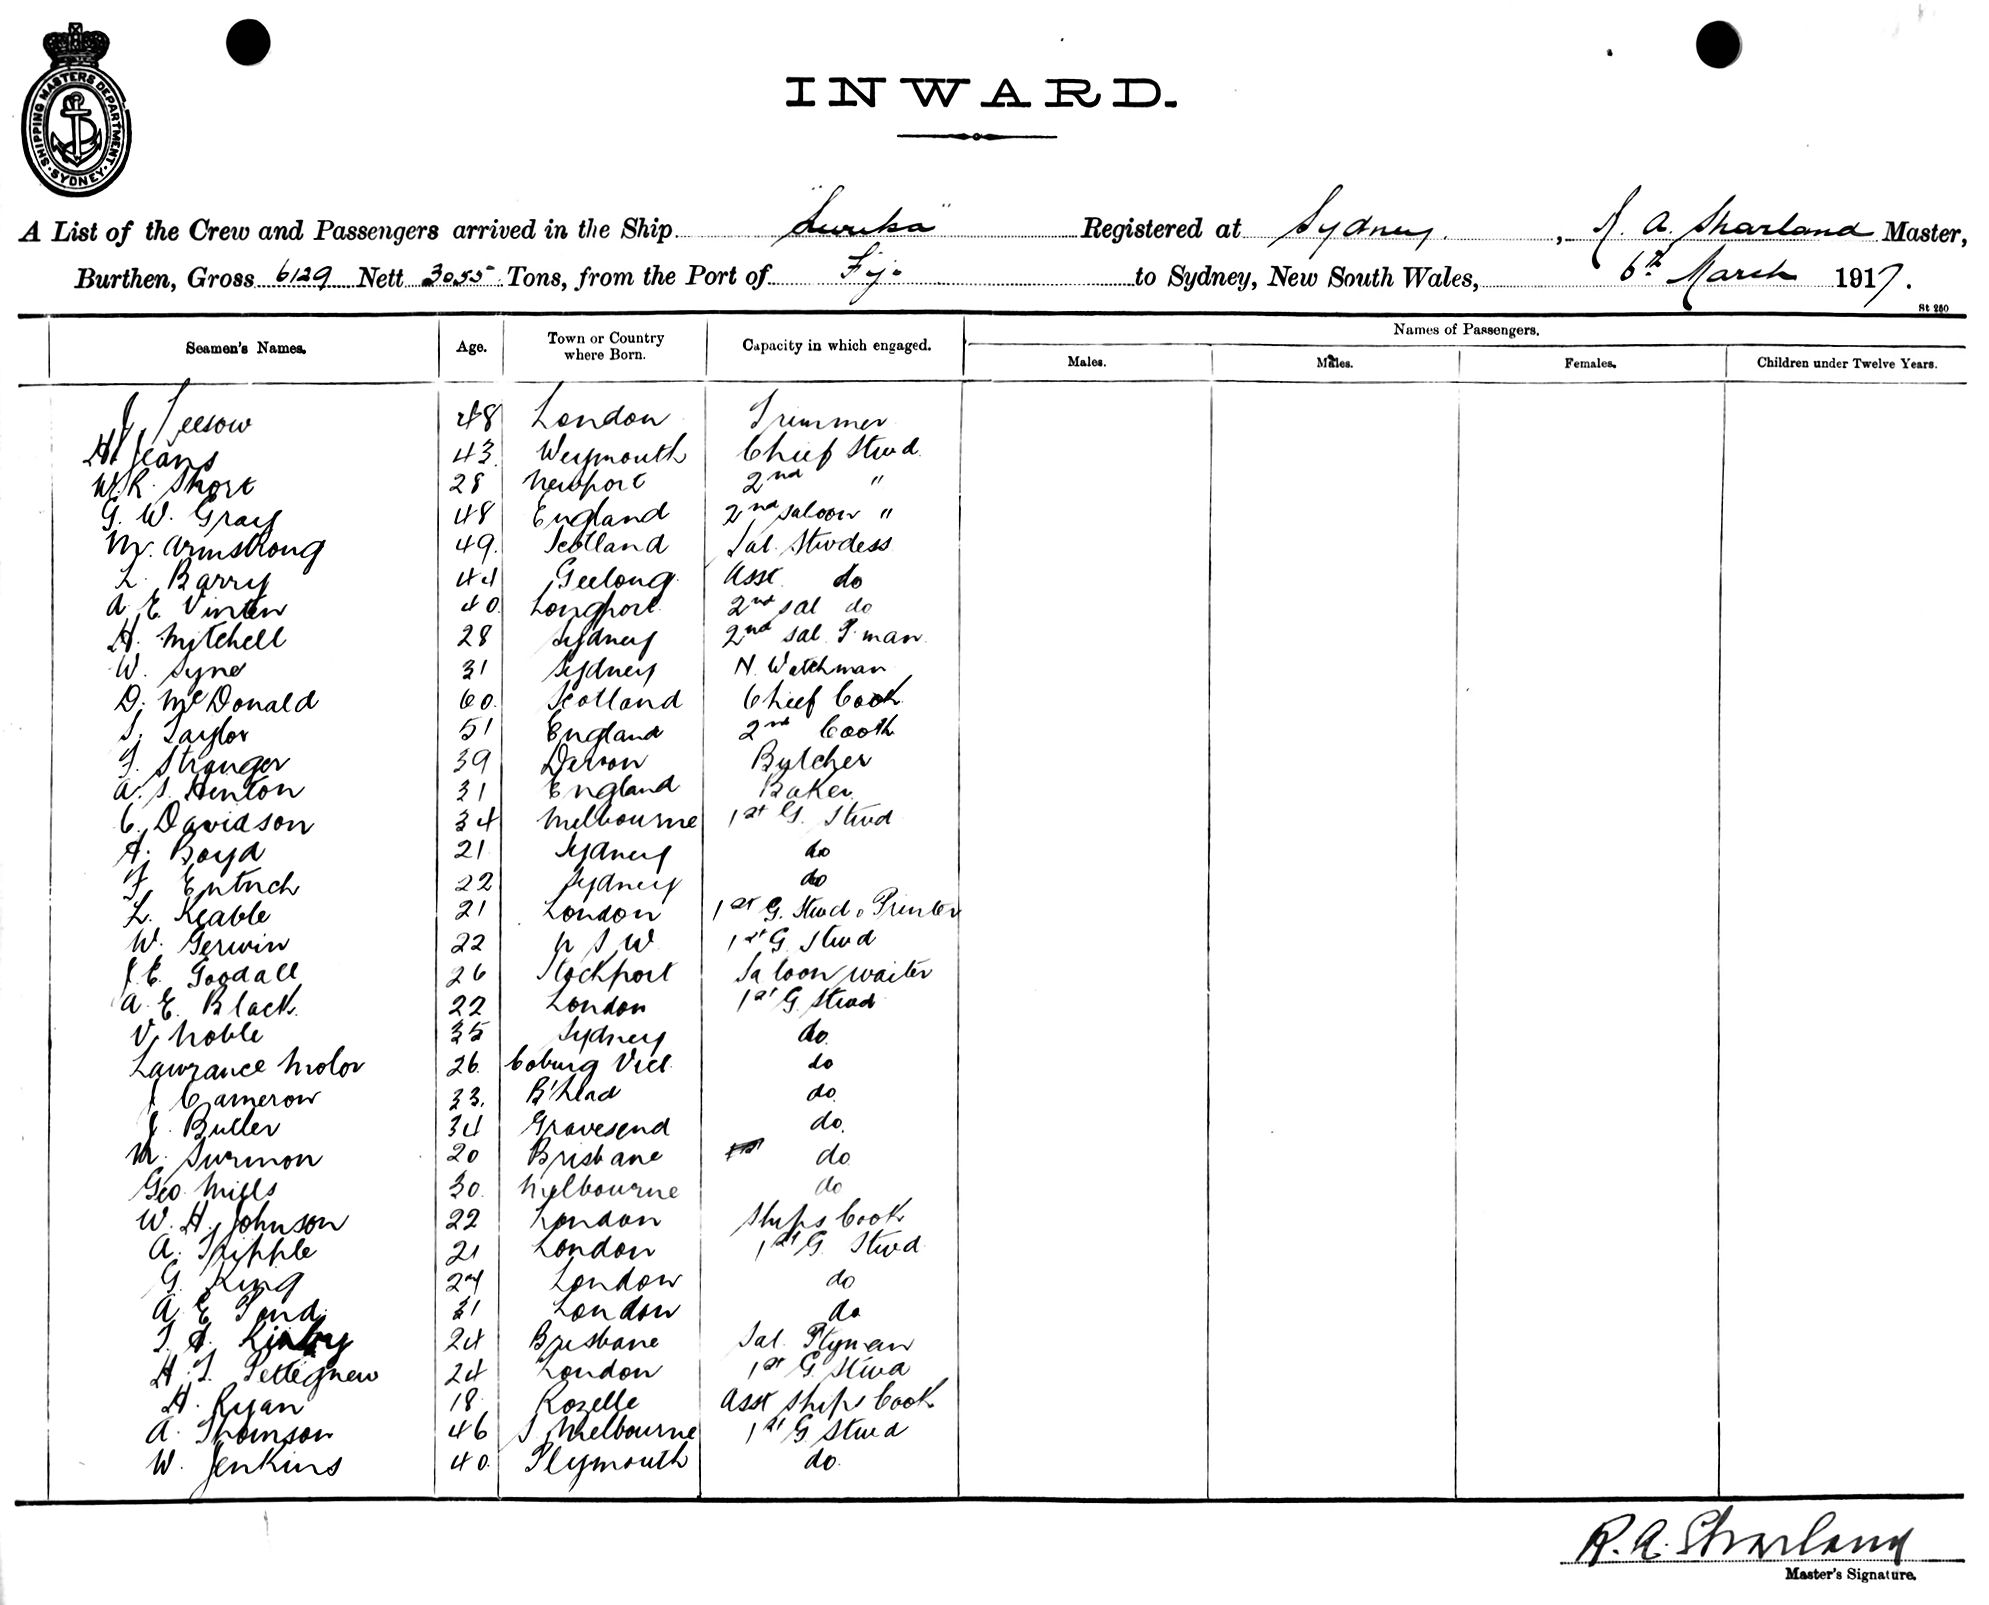 SHIPPING MASTERS DEPARTMENT · SYDNEY ·
INWARD.
A List of the Crew and Passengers arrived in the Ship "Levuka" Registered at Sydney, R. A. Sharland Master,
Burthen, Gross 6129 Nett 3055 Tons, from the Port of Fiji to Sydney, New South Wales, 6th March 1917.
St 250
Seamen's Names. Age. Town or Country where Born. Capacity in which engaged. Names of Passengers.
Males. Males. Females. Children under Twelve Years.
J. 48 London Trimmer
H. Jeans 43 Weymouth Chief Stwd
W. R. Short 28 Newport 2nd "
G. W. Gray 48 England 2nd saloon "
M. Armstrong 49 Scotland Sal. Stwdess
L. Barry 44 Geelong Asst do
A. E. Vinten 40 Longport 2nd sal do
H. Mitchell 28 Sydney 2nd sal P. man
W. Syne 31 Sydney N. Watchman
D. McDonald 60 Scotland Chief Cook
S. Taylor 51 England 2nd Cook
F. Stranger 39 Devon Butcher
A. S. Henton 31 England Baker
C. Davidson 34 Melbourne 1st G. Stwd
A. Boyd 21 Sydney do
F. 22 Sydney do
L. Keable 21 London 1st G. Stwd & Printer
W. Gerwin 22 N S W 1st G. Stwd
J. E. Goodall 26 Stockport Saloon waiter
A. E. Black 22 London 1st G. Stwd
V. Noble 35 Sydney do
Lawrance 26 Coburg Vict do
J. Cameron 33 B'head do
J. Butler 34 Gravesend do
M. Surmon 20 Brisbane do
Geo. Mills 30 Melbourne do
W. H. Johnson 22 London Ships Cook
A. 21 London 1st G. Stwd
G. King 24 London do
A. E. Pond 31 London do
24 Brisbane Sal. Ptyman
H. T. Pettegrew 24 London 1st G. Stwd
H. Ryan 18 Rozelle Asst Ships Cook
A. Thomson 46 S. Melbourne 1st G Stwd
W. Jenkins 40 Plymouth do
R. A. Sharland
Master's Signature.